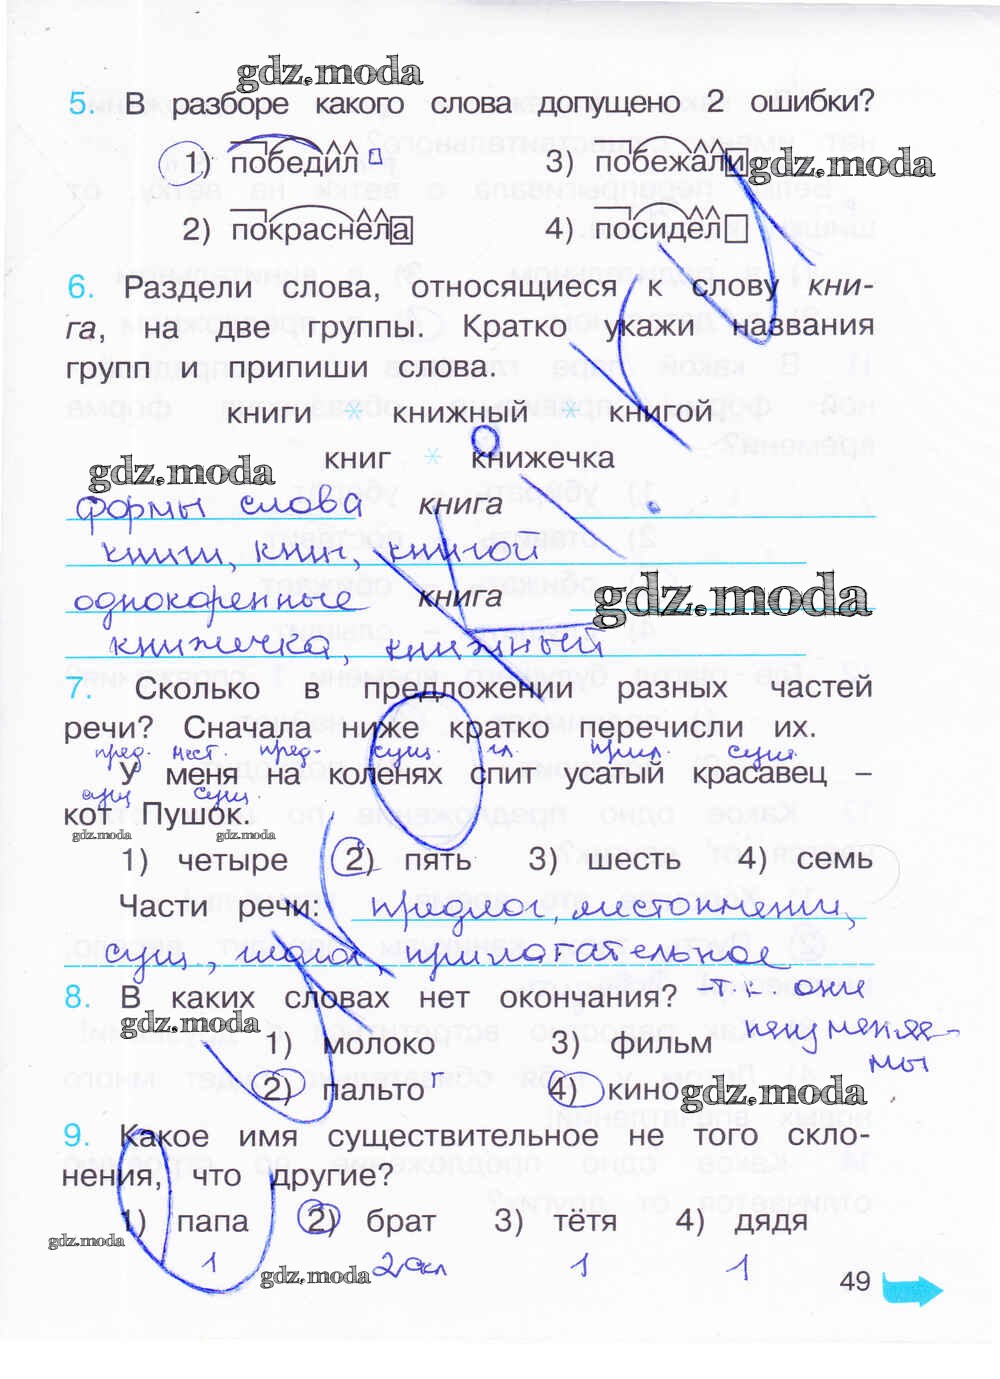 gdz.moda
5. В разборе какого слова допущено 2 ошибки?
1) победил 3) побежали gdz.moda
2) покраснела 4) посидел
6. Раздели слова, относящиеся к слову кни-
га, на две группы. Кратко укажи названия
групп и припиши слова.
книги * книжный * книгой
книг * книжечка
gdz.moda
формы слова книга
книги, книг, книгой
однокоренные книга gdz.moda
книжечка, книжный
7. Сколько в предложении разных частей
речи? Сначала ниже кратко перечисли их.
пред. мест. пред. сущ. гл. прил. сущ.
У меня на коленях спит усатый красавец –
сущ сущ
кот Пушок.
gdz.moda gdz.moda
1) четыре 2) пять 3) шесть 4) семь
Части речи: предлог, местоимении,
сущ., глагол, прилагательное
8. В каких словах нет окончания? -т.к. они
gdz.moda неизменяе-
1) молоко 3) фильм мы
2) пальто 4) кино gdz.moda
9. Какое имя существительное не того скло-
нения, что другие?
1) папа 2) брат 3) тётя 4) дядя
gdz.moda
1 2 скл 1 1
gdz.moda
49